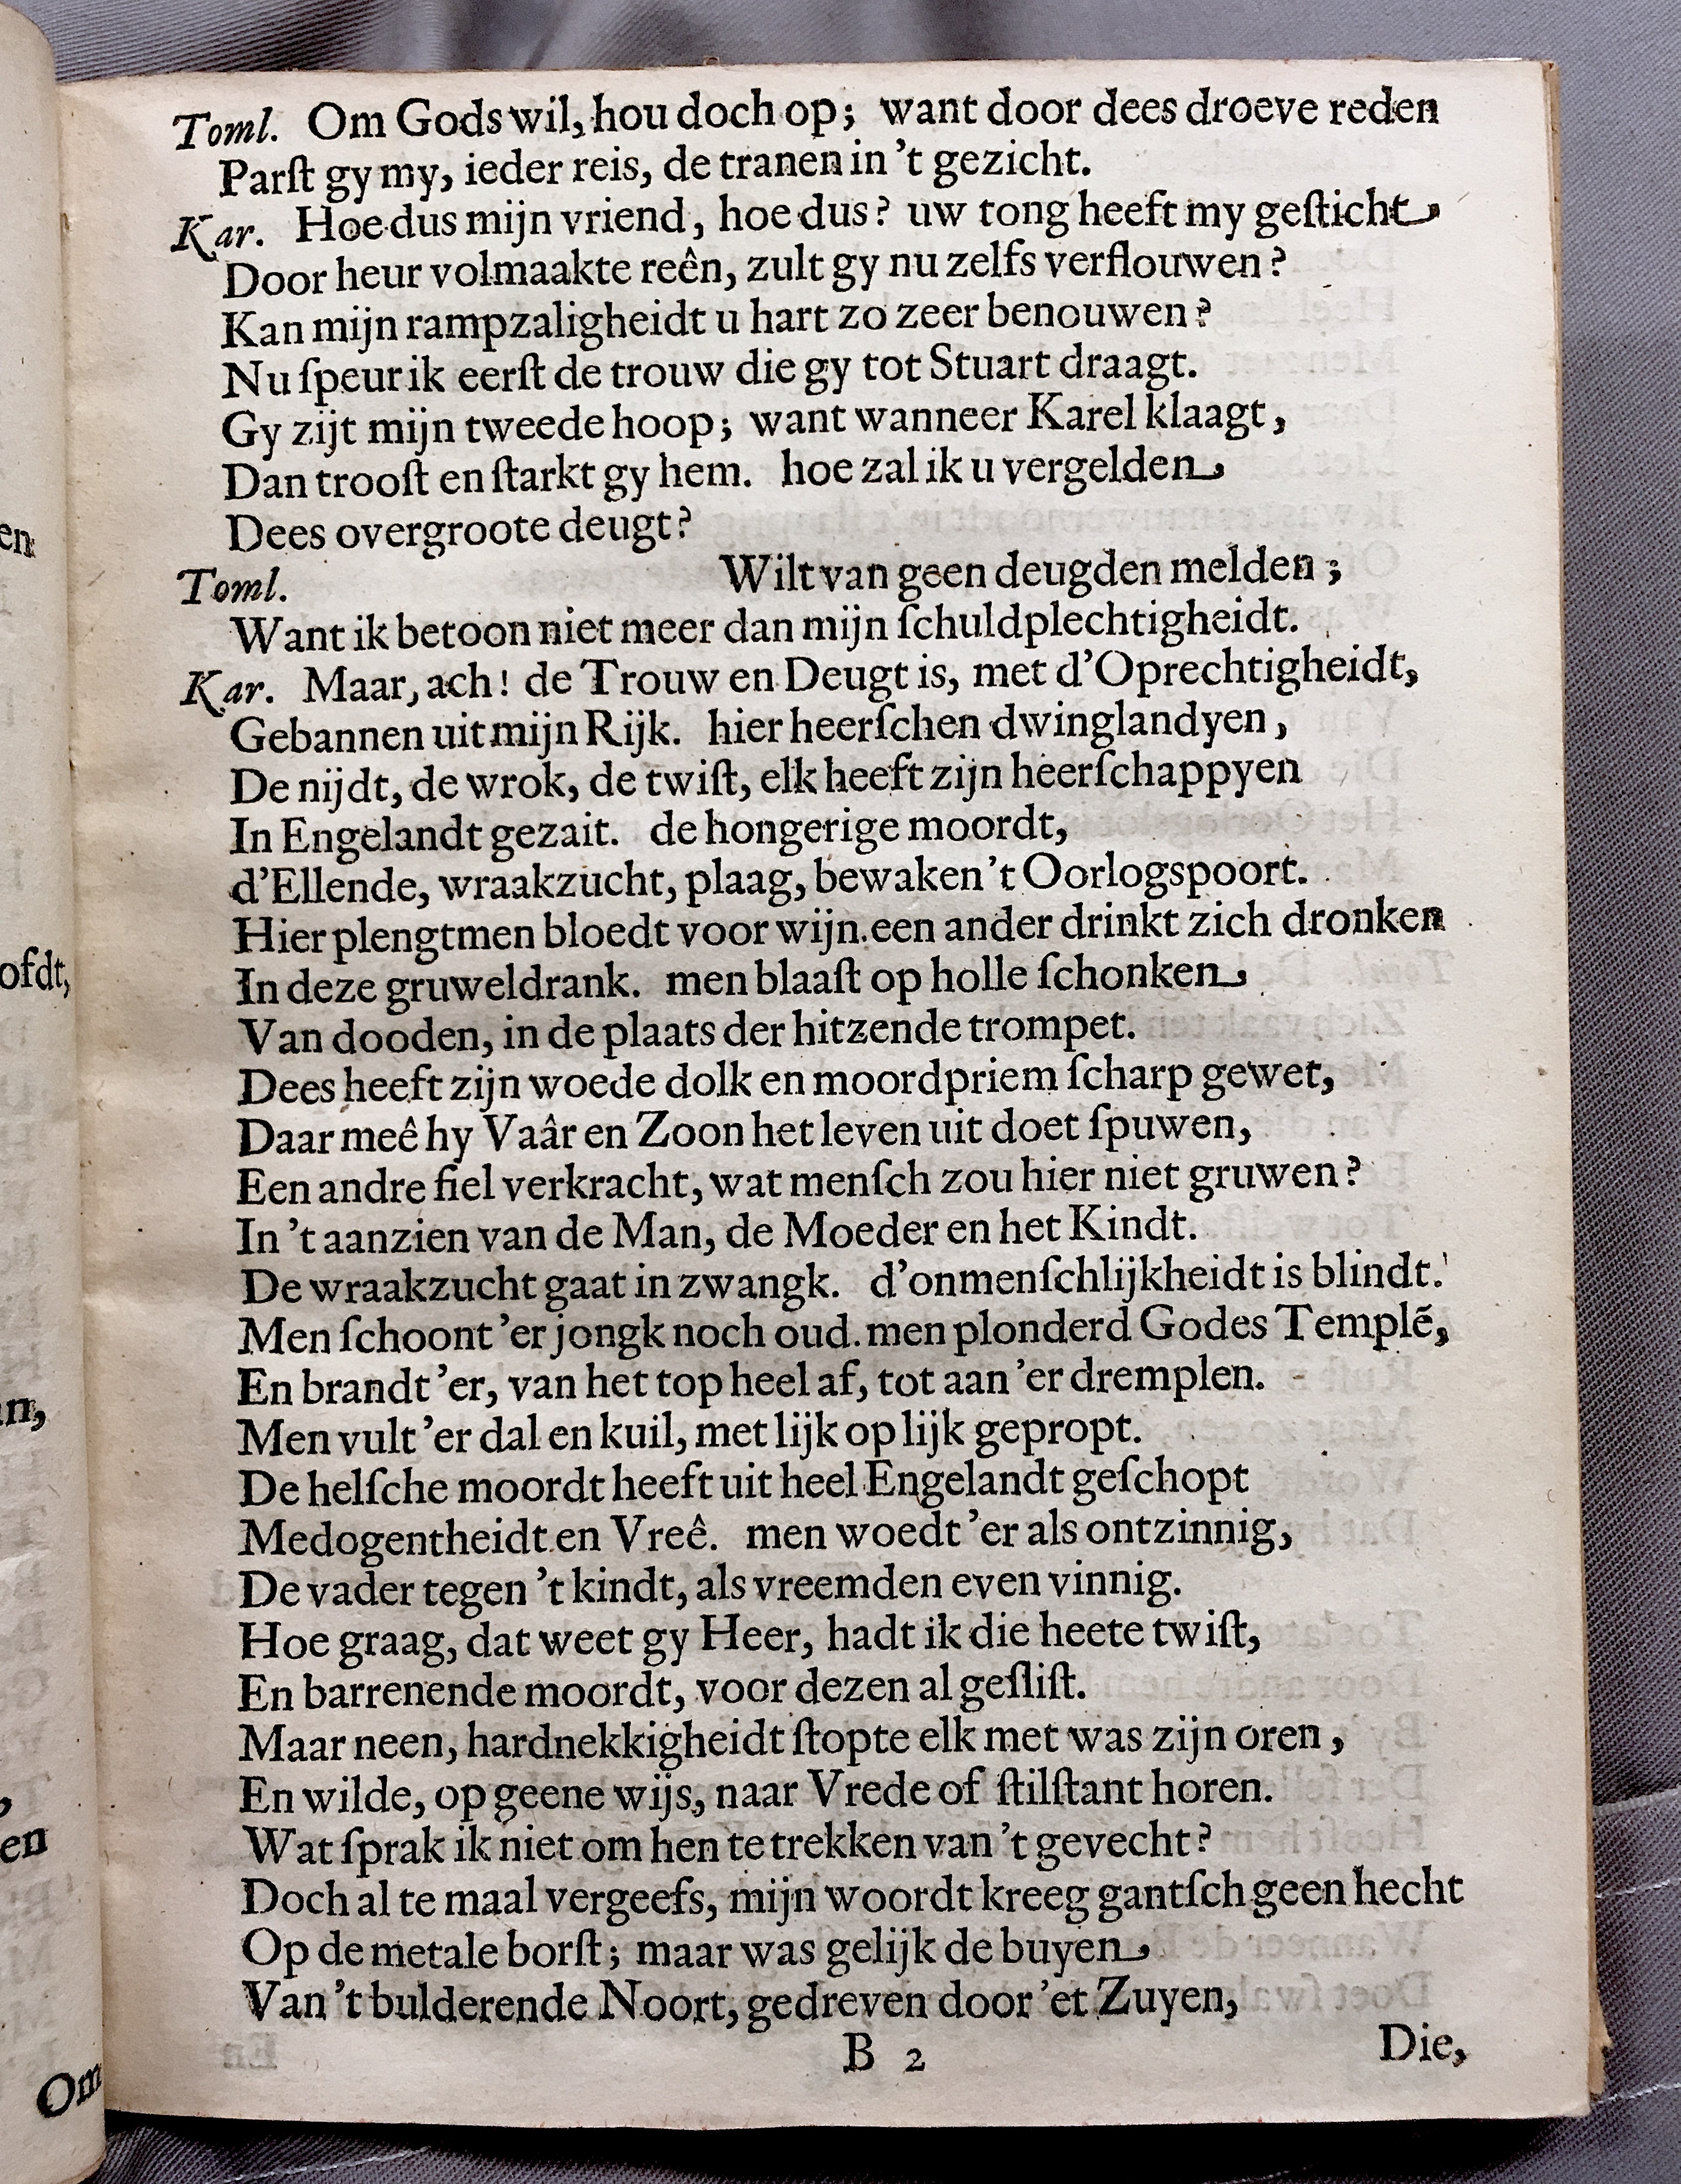 Toml. Om Gods wil, hou doch op; want door dees droeve reden
Parſt gy my, ieder reis, de tranen in 't gezicht.
Kar. Hoe dus mijn vriend, hoe dus? uw tong heeft my geſticht
Door heur volmaakte reên, zult gy nu zelfs verflouwen?
Kan mijn rampzaligheidt u hart zo zeer benouwen?
Nu ſpeur ik eerſt de trouw die gy tot Stuart draagt.
Gy zijt mijn tweede hoop; want wanneer Karel klaagt,
Dan trooſt en ſtarkt gy hem. hoe zal ik u vergelden
Dees overgroote deugt?
Toml. Wilt van geen deugden melden;
Want ik betoon niet meer dan mijn ſchuldplechtigheidt.
Kar. Maar, ach! de Trouw en Deugt is, met d'Oprechtigheidt,
Gebannen uit mijn Rijk. hier heerſchen dwinglandyen,
De nijdt, de wrok, de twiſt, elk heeft zijn heerſchappyen
In Engelandt gezait. de hongerige moordt,
d'Ellende, wraakzucht, plaag, bewaken 't Oorlogspoort.
Hier plengtmen bloedt voor wijn. een ander drinkt zich dronken
In deze gruweldrank. men blaaſt op holle ſchonken
Van dooden, in de plaats der hitzende trompet.
Dees heeft zijn woede dolk en moordpriem ſcharp gewet,
Daar meê hy Vaâr en Zoon het leven uit doet ſpuwen,
Een andre fiel verkracht, wat menſch zou hier niet gruwen?
In 't aanzien van de Man, de Moeder en het Kindt.
De wraakzucht gaat in zwangk. d'onmenſchlijkheidt is blindt.
Men ſchoont 'er jongk noch oud. men plonderd Godes Templē,
En brandt 'er, van het top heel af, tot aan 'er dremplen.
Men vult 'er dal en kuil, met lijk op lijk gepropt.
De helſche moordt heeft uit heel Engelandt geſchopt
Medogentheidt en Vreê. men woedt 'er als ontzinnig,
De vader tegen 't kindt, als vreemden even vinnig.
Hoe graag, dat weet gy Heer, hadt ik die heete twiſt,
En barrenende moordt, voor dezen al geſliſt.
Maar neen, hardnekkigheidt ſtopte elk met was zijn oren,
En wilde, op geene wijs, naar Vrede of ſtilſtant horen.
Wat ſprak ik niet om hen te trekken van 't gevecht?
Doch al te maal vergeefs, mijn woordt kreeg gantſch geen hecht
Op de metale borſt; maar was gelijk de buyen
Van 't bulderende Noort, gedreven door 'et Zuyen,
B 2 Die,
en
ofdt,
n,
,
en
Om